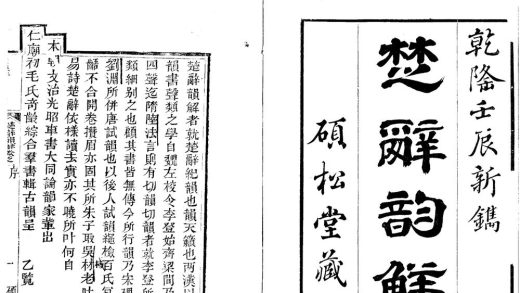 乾隆壬辰新鐫
楚辭韵解
碩松堂藏
楚辭韻解者就楚辭紀韻也韻天籟也兩漢以
韻書聲類之學自魏左校令李登始齊梁間乃
四聲迄隋陸法言則有切韻切韻者就李登所
類細别之也顧其書皆無傳今所行韻乃宋理
劉淵所併唐試韻也以後人試韻繩檢百氏冥
齟不合開卷攢眉亦固其所朱子取吳材老叶
易詩楚辭依樣讀去實亦不曉所叶何自
本 文治光昭車書大同論韻家輩出
仁廟初毛氏奇齡綜合羣書輯古韻呈 乙覽
序
一
碩